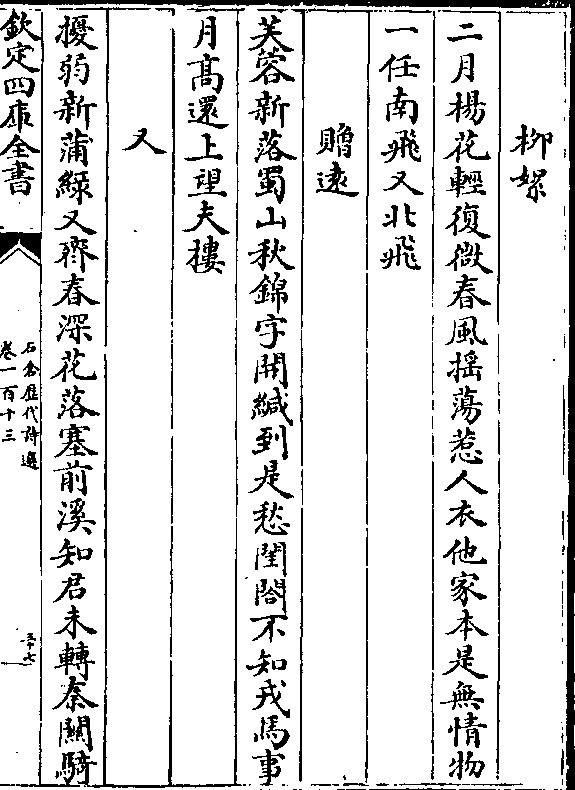 柳絮
二月楊花輕復微春風揺蕩惹人衣他家本是無情物
一任南飛又北飛
贈逺
芙蓉新落蜀山秋錦字開緘到是愁閨閤不知戎馬事
月髙還上望夫樓
又
擾弱新蒲緑又齊春深花落塞前溪知君未轉秦關騎
欽定四庫全書
石倉歴代詩選
卷一百十三
三十七